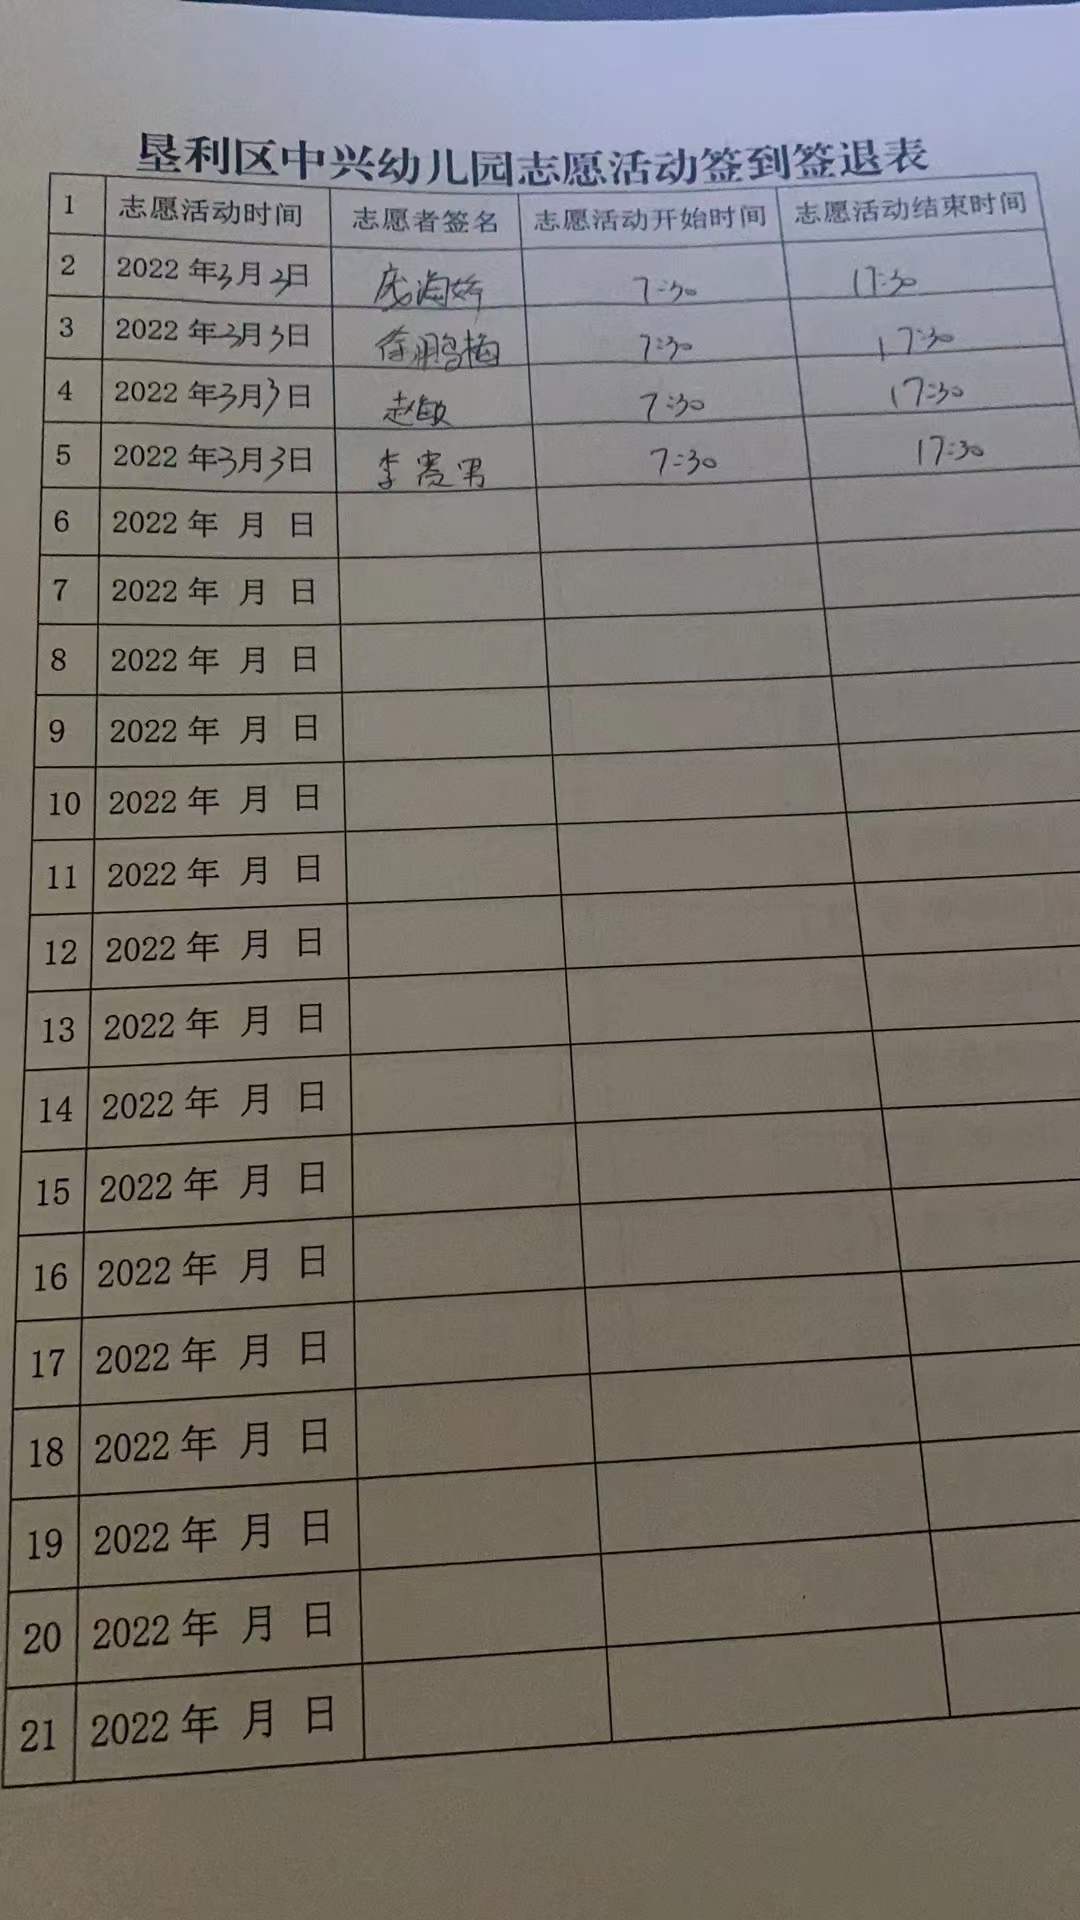 垦利区中兴幼儿园志愿活动签到签退表
1 志愿活动时间 志愿者签名 志愿活动开始时间 志愿活动结束时间
2 2022年3月3日 7:30 17:30
3 2022年3月3日 徐鹏梅 7:30 17:30
4 2022年3月3日 赵敏 7:30 17:30
5 2022年3月3日 李赛男 7:30 17:30
6 2022年 月 日
7 2022年 月 日
8 2022年 月 日
9 2022年 月 日
10 2022年 月 日
11 2022年 月 日
12 2022年 月 日
13 2022年 月 日
14 2022年 月 日
15 2022年 月 日
16 2022年 月 日
17 2022年 月 日
18 2022年 月 日
19 2022年 月 日
20 2022年 月 日
21 2022年 月 日